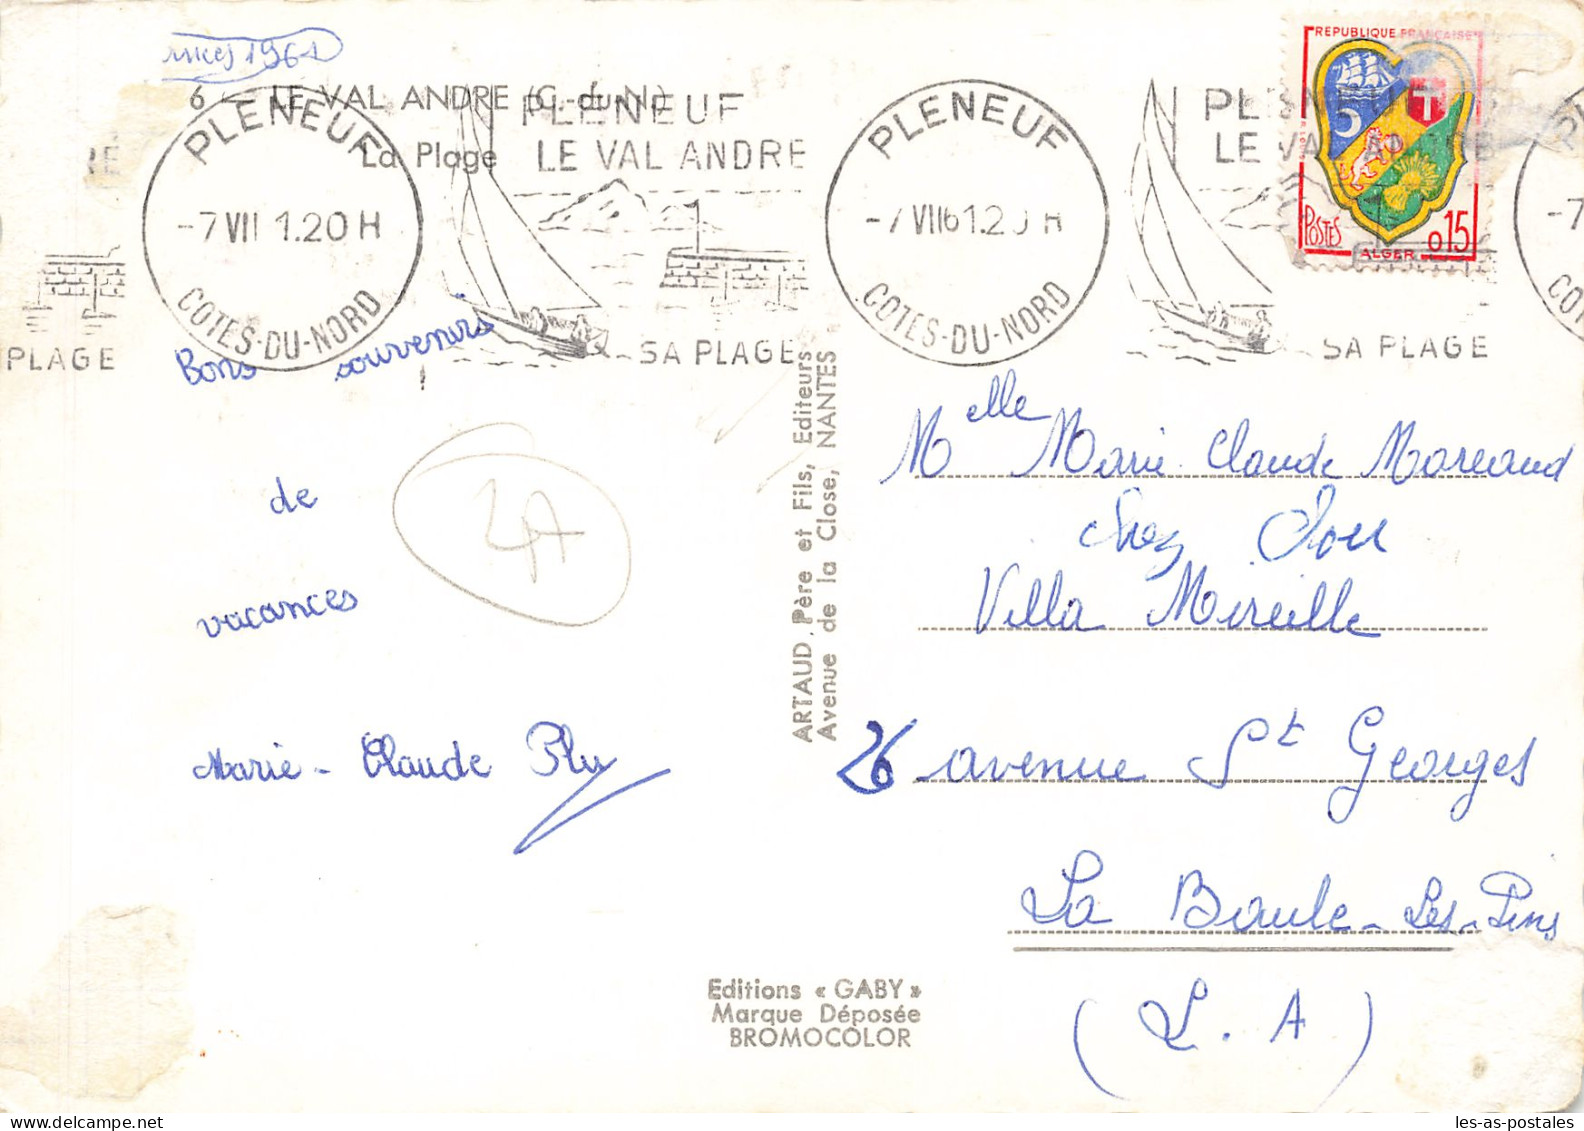 1961
6 - LE VAL ANDRE (C.-du-N.)
La Plage
PLENEUF
-7 VII 1.20 H
COTES-DU-NORD
PLENEUF
LE VAL ANDRE
SA PLAGE
PLENEUF
-7 VII 61.20 H
COTES-DU-NORD
PLENEUF
LE VAL ANDRE
SA PLAGE
PLAGE
REPUBLIQUE FRANÇAISE
POSTES
ALGER
0,15
Bons souvenirs
de
vacances
Marie-Claude
4A
ARTAUD, Père et Fils, Editeurs
Avenue de la Close, NANTES
Melle Marie Claude Moreaud
chez
Villa Mireille
26 avenue St Georges
La Baule-Les-Pins
(L.A)
Editions « GABY »
Marque Déposée
BROMOCOLOR
les-as-postales